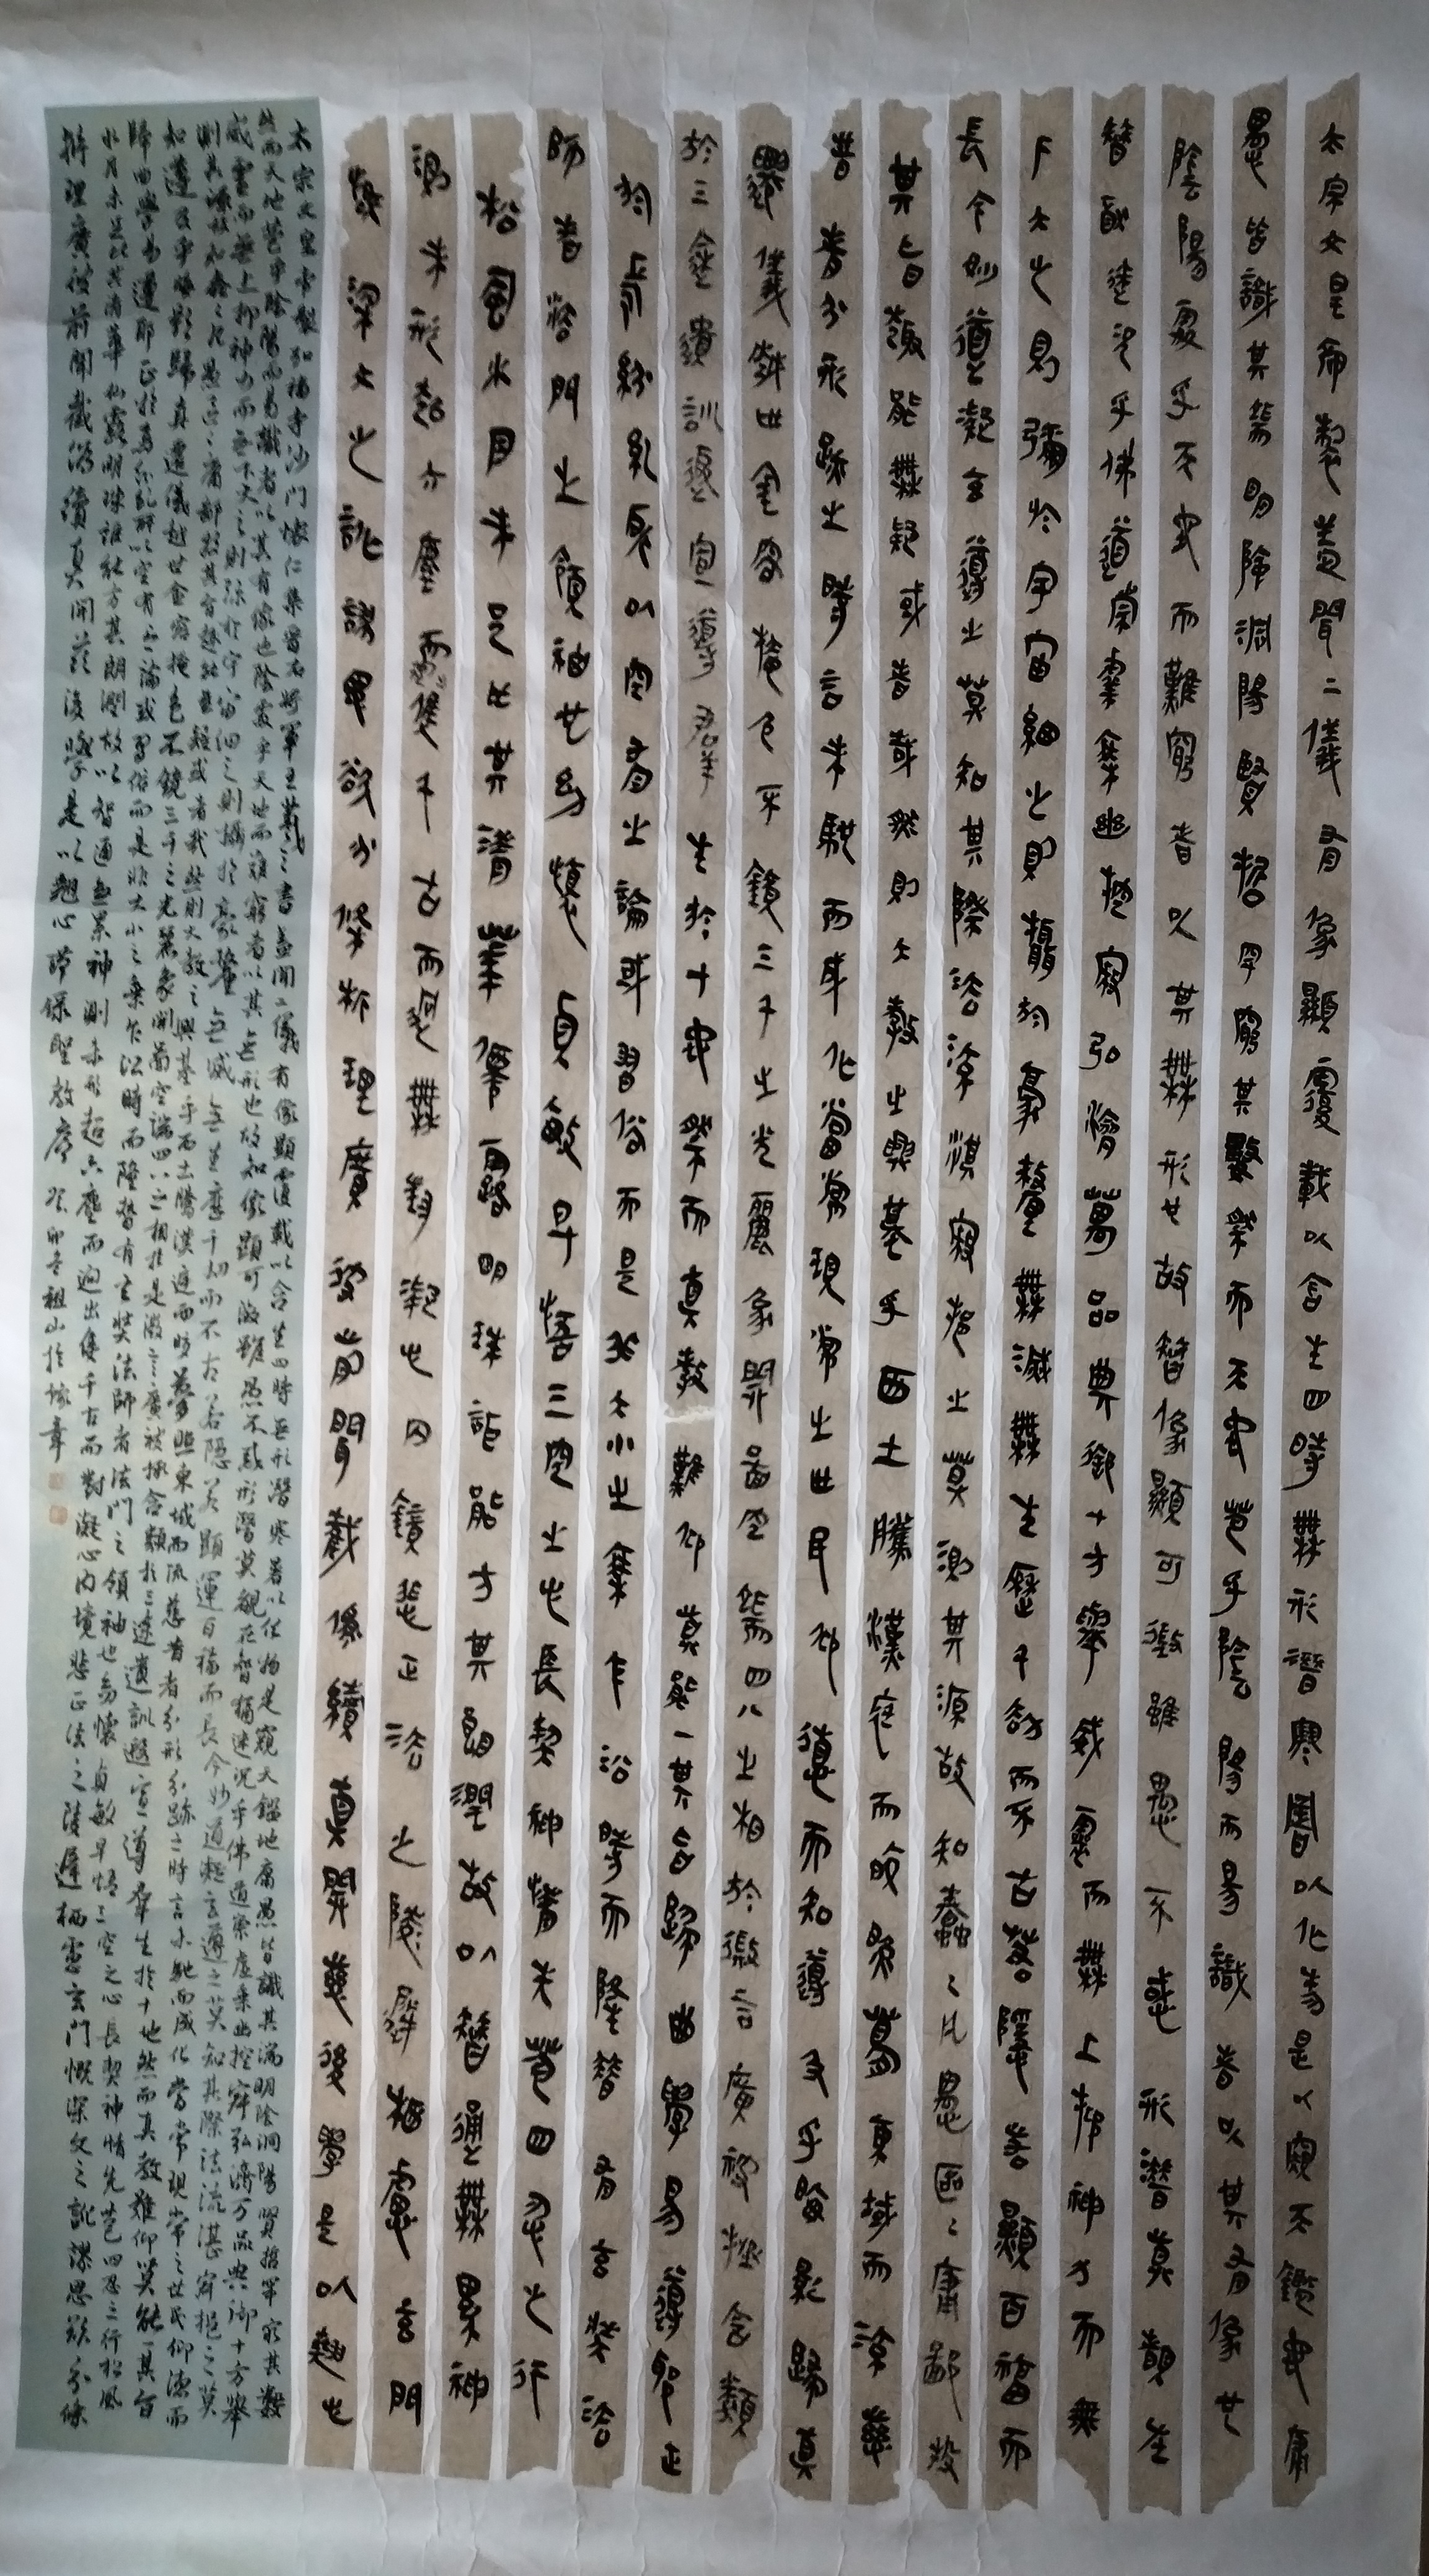 太宗文皇帝製蓋聞二儀有像顯覆載以含生四時無形潛寒暑以化物是以窺天鑑地庸
愚皆識其端明陰洞陽賢哲罕窮其數然而天地苞乎陰陽而易識者以其有像也
陰陽處乎天地而難窮者以其無形也故智像顯可徵雖愚不惑形潛莫覩在
智猶迷況乎佛道崇虛乘幽控寂弘濟萬品典御十方舉威靈而無上抑神力而無
下大之則彌於宇宙細之則攝於豪釐無滅無生歷千劫而不古若隱若顯百福而
長今妙道凝玄遵之莫知其際法流湛寂挹之莫測其源故知蠢〻凡愚區〻庸鄙投
其旨趣能無疑或者哉然則大教之興基乎西土騰漢庭而皎夢照東域而流慈
昔者分形跡之時言未馳而成化當常現常之世民仰德而知遵及乎晦影歸真
遷儀越世金容掩色不鏡三千之光麗象開圖空端四八之相於微言廣被拯含類
於三途遺訓遐宣導群生於十地然而真教難仰莫能一其旨歸曲學易遵邪正
於焉紛糺所以空有之論或習俗而是非大小之乘乍沿時而隆替有玄奘法
師者法門之領袖也幼懷貞敏早悟三空之心長契神情先苞四忍之行
松風水月未足比其清華仙露明珠詎能方其朗潤故以智通無累神
測未形超六塵而迥出隻千古而無對凝心內境悲正法之陵遲栖慮玄門
慨深文之訛謬思欲分條析理廣彼前聞截偽續真開茲後學是以翹心
太宗文皇帝製弘福寺沙門懷仁集晉右將軍王羲之書蓋聞二儀有像顯覆載以含生四時無形潛寒暑以化物是窺天鑑地庸愚皆識其端明陰洞陽賢哲罕窮其數
然而天地苞乎陰陽而易識者以其有像也陰陽處乎天地而難窮者以其無形也故知像顯可徵雖愚不惑形潛莫覩在智猶迷況乎佛道崇虛乘幽控寂弘濟万品典御十方舉
威靈而無上抑神力而無下大之則彌於宇宙細之則攝於豪釐無滅無生歷千劫而不古若隱若顯運百福而長今妙道凝玄遵之莫知其際法流湛寂挹之莫
測其源故知蠢〻凡愚區〻庸鄙投其旨趣能無疑或者哉然則大教之興基乎西土騰漢庭而皎夢照東域而流慈昔者分形分跡之時言未馳而成化當常現常之世民仰德而
知遵及乎晦影歸真遷儀越世金容掩色不鏡三千之光麗象開圖空端四八之相於是微言廣被拯含類於三途遺訓遐宣導群生於十地然而真教難仰莫能一其旨
歸曲學易遵邪正於焉紛糾所以空有之論或習俗而是非大小之乘乍沿時而隆替有玄奘法師者法門之領袖也幼懷貞敏早悟三空之心長契神情先苞四忍之行松風
水月未足比其清華仙露明珠詎能方其朗潤故以智通無累神測未形超六塵而迥出隻千古而對凝心內境悲正法之陵遲栖慮玄門慨深文之訛謬思欲分條
析理廣彼前聞截偽續真開茲後學是以翹心節錄聖教序癸卯冬祖山於豫章